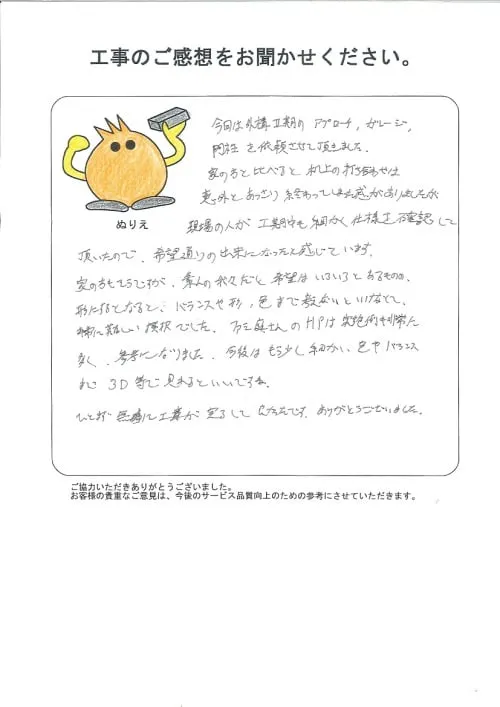 工事のご感想をお聞かせください。
今回は外構工事期の アプローチ, ガレージ,
門柱 を依頼させて頂きました.
家の方と比べると 机上の打ち合わせは
意外と あっさり 終わってしまった感がありましたが
ぬりえ
現場の人が 工期中も 細かく 仕様を 確認して
頂いたので、希望通りの出来になったと感じています.
家の方もそうですが、素人の我々だと 希望は いろいろとあるものの、
形にするとなると、バランスや形, 色まで数多いといいなどで、
非常に難しい 選択でした. さんのHPは実施例も非常に
多く、参考になりました. 今後は もう少し 細かい、色や バランス
まで 3D 等で見れるといいですね.
ひとまず 無事に工事が 完了して ありがとうございました.
ご協力いただきありがとうございました。
お客様の貴重なご意見は、今後のサービス品質向上のための参考にさせていただきます。